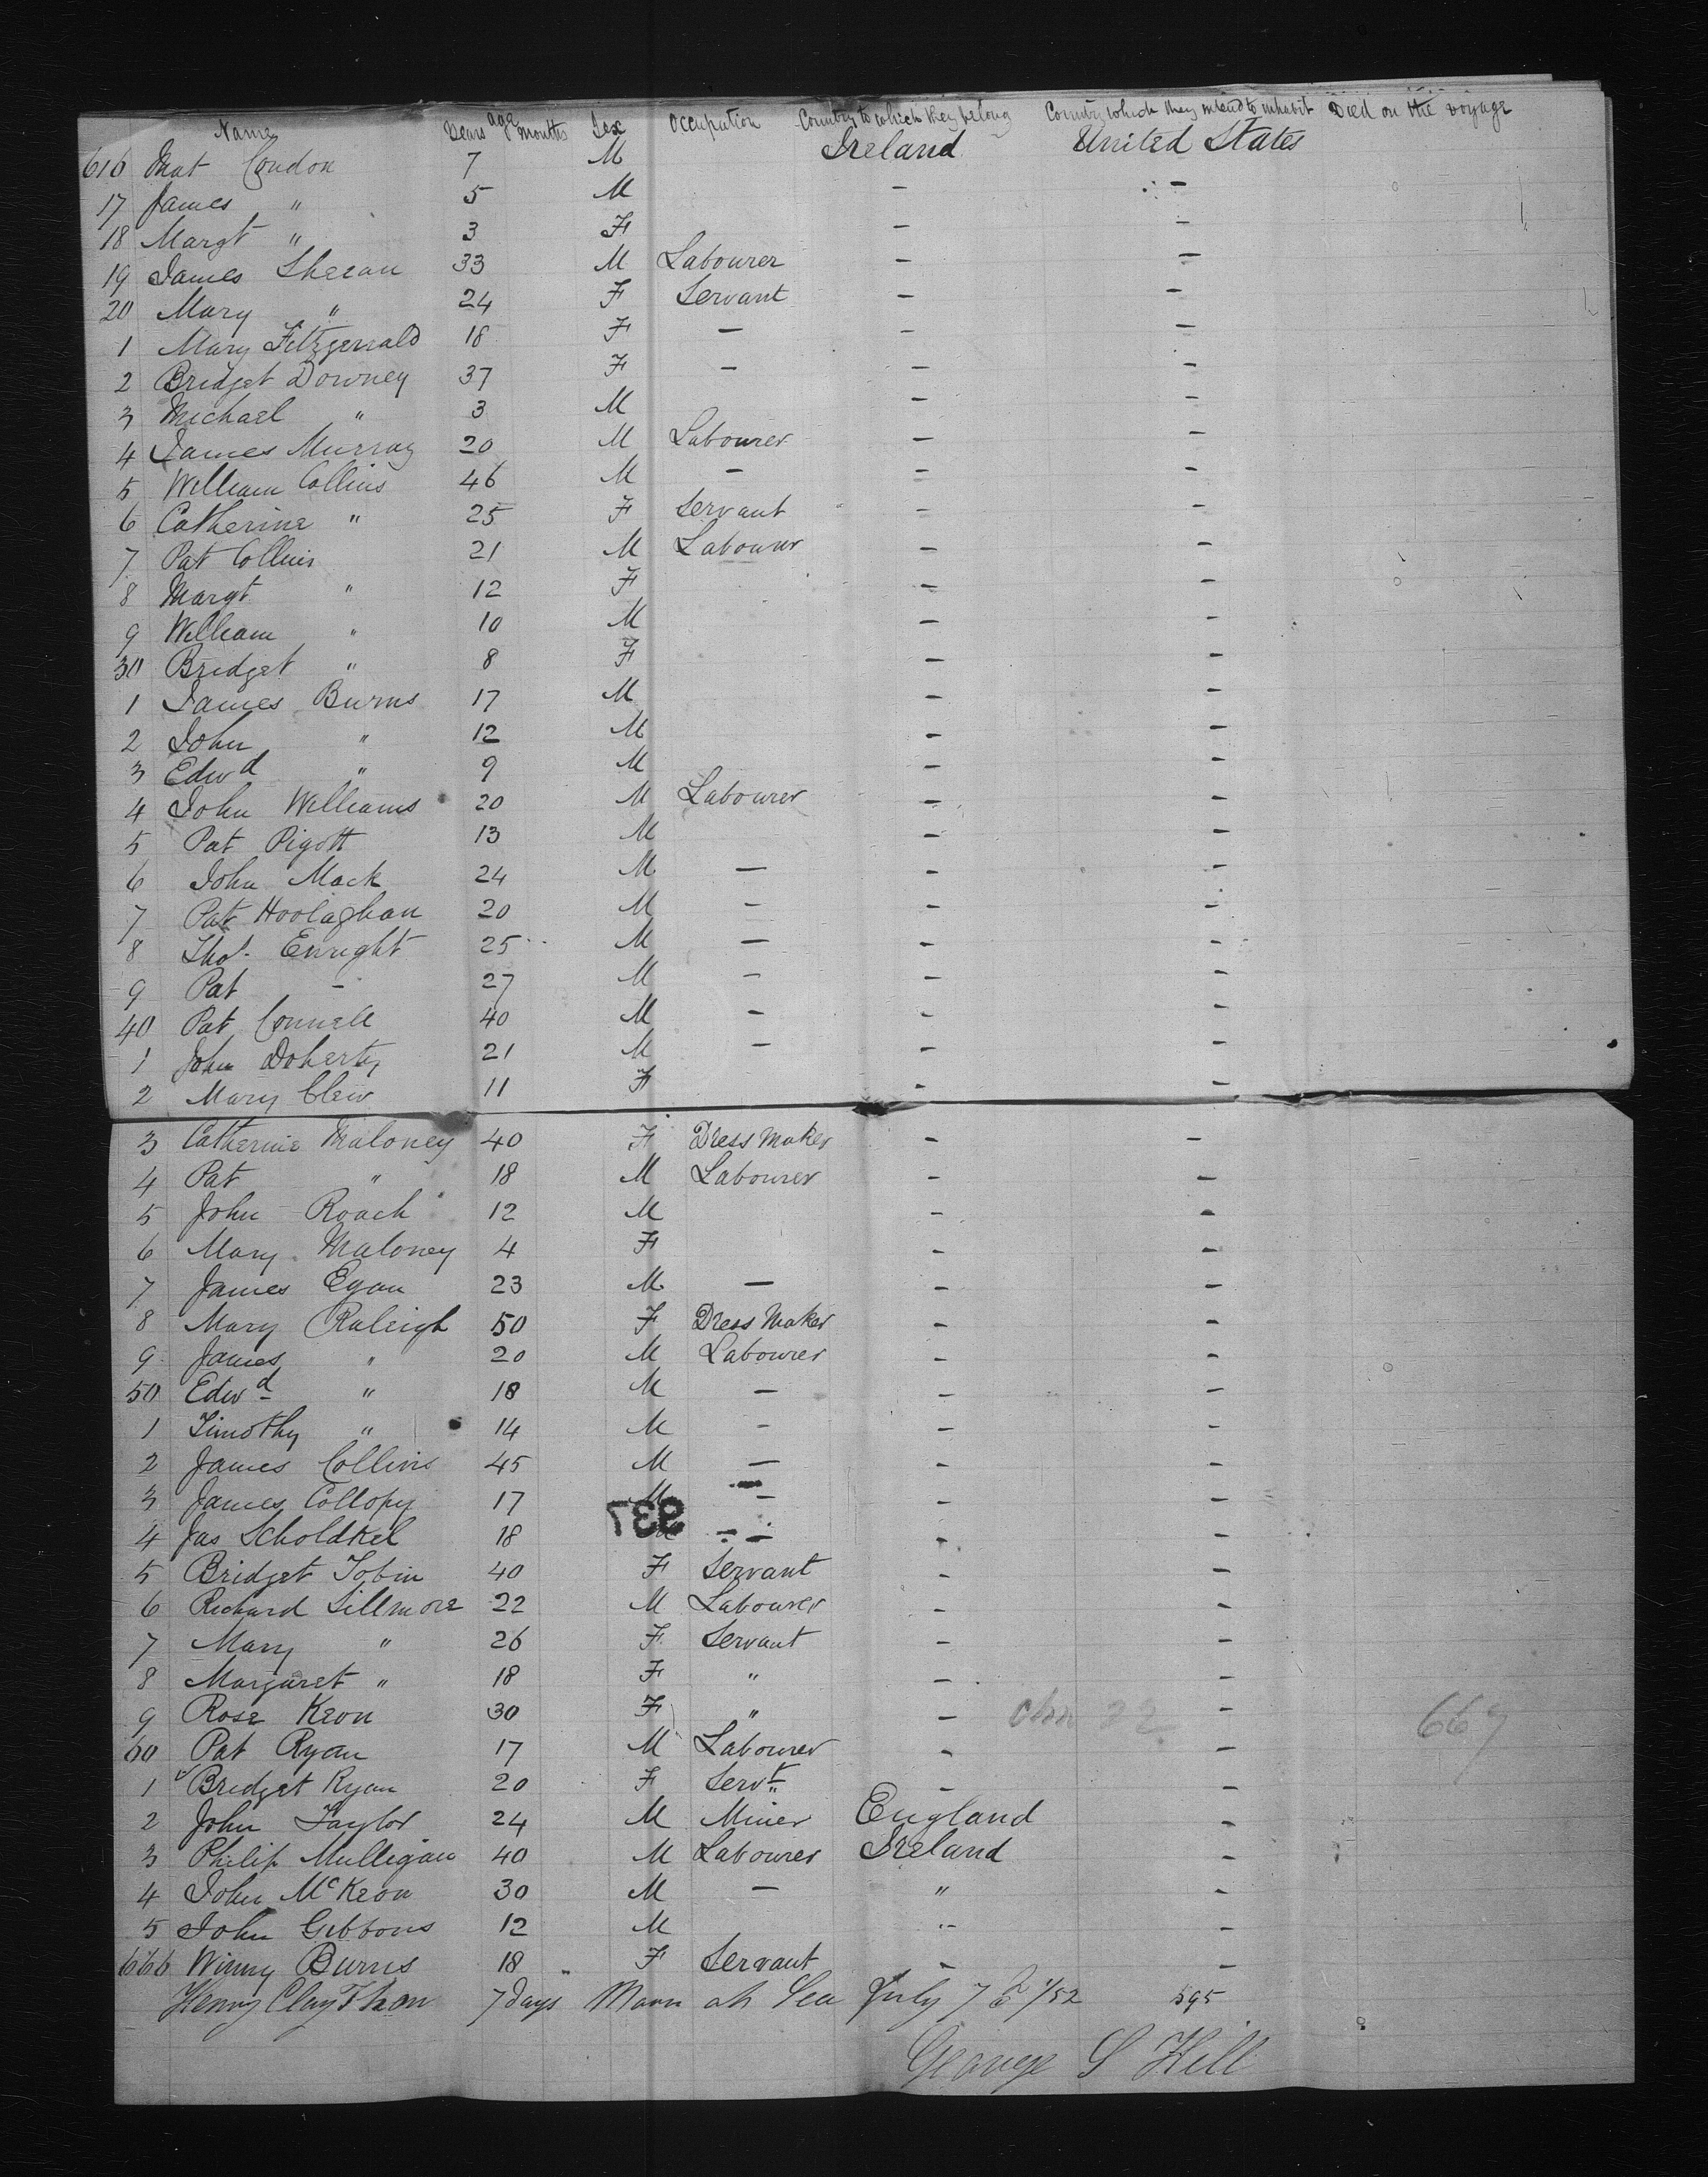 Name Years age months Sex Occupation Country to which they belong Country which they intend to inhabit Died on the voyage
616 Mat Condon 7 M Ireland United States
17 James " 5 M - -
18 Margt " 3 F - -
19 James Sheean 33 M Labourer - -
20 Mary " 24 F Servant - -
1 Mary Fitzgerrald 18 F - - -
2 Bridget Downey 37 F - - -
3 Michael " 3 M - -
4 James Murray 20 M Labourer - -
5 William Collins 46 M - - -
6 Catherine " 25 F Servant - -
7 Pat Collins 21 M Labourer - -
8 Margt " 12 F - -
9 William " 10 M - -
30 Bridget " 8 F - -
1 James Burns 17 M - -
2 John " 12 M - -
3 Edwd " 9 M - -
4 John Williams 20 M Labourer - -
5 Pat Pigott 13 M - -
6 John Mack 24 M - - -
7 Pat Hoolaghan 20 M - - -
8 Thos. Enright 25 M - - -
9 Pat - 27 M - - -
40 Pat Connell 40 M - - -
1 John Doherty 21 M - - -
2 Mary Clew 11 F - -
3 Catherine Maloney 40 F Dress Maker - -
4 Pat " 18 M Labourer - -
5 John Roach 12 M - -
6 Mary Maloney 4 F - -
7 James Egan 23 M - - -
8 Mary Raleigh 50 F Dress Maker - -
9 James " 20 M Labourer - -
50 Edwd " 18 M - - -
1 Timothy " 14 M - - -
2 James Collins 45 M - - -
3 James Collopy 17 M - - -
937
4 Jas Scholdkel 18 - - -
5 Bridget Tobin 40 F Servant - -
6 Richard Sillmore 22 M Labourer - -
7 Mary " 26 F Servant - -
8 Margaret " 18 F " - -
9 Rose Keon 30 F " - - 669
60 Pat Ryan 17 M Labourer - -
1 Bridget Ryan 20 F Servt - -
2 John Taylor 24 M Miner England -
3 Philip Mulligan 40 M Labourer Ireland -
4 John McKeon 30 M - " -
5 John Gibbons 12 M " -
666 Winny Burns 18 F Servant - -
Henry Clay 7 days at Sea July 7 /52 595
George S Hill